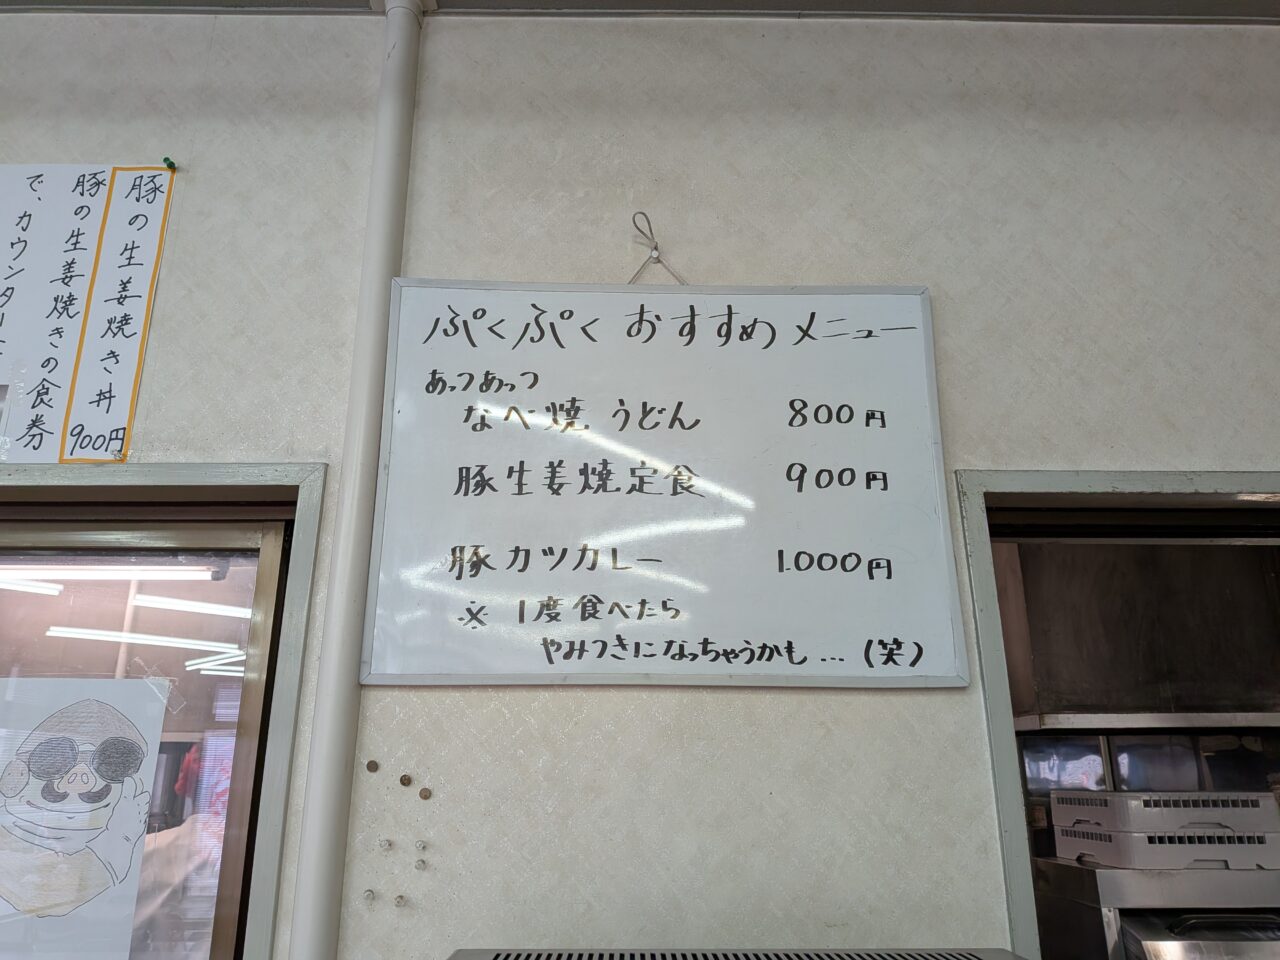 ぷくぷくおすすめメニュー
あっつあっつ
なべ焼うどん 800円
豚生姜焼定食 900円
豚カツカレー 1.000円
※ 1度食べたら
やみつきになっちゃうかも…(笑)
豚の生姜焼き丼 900円
豚の生姜焼きの食券
で、カウンター